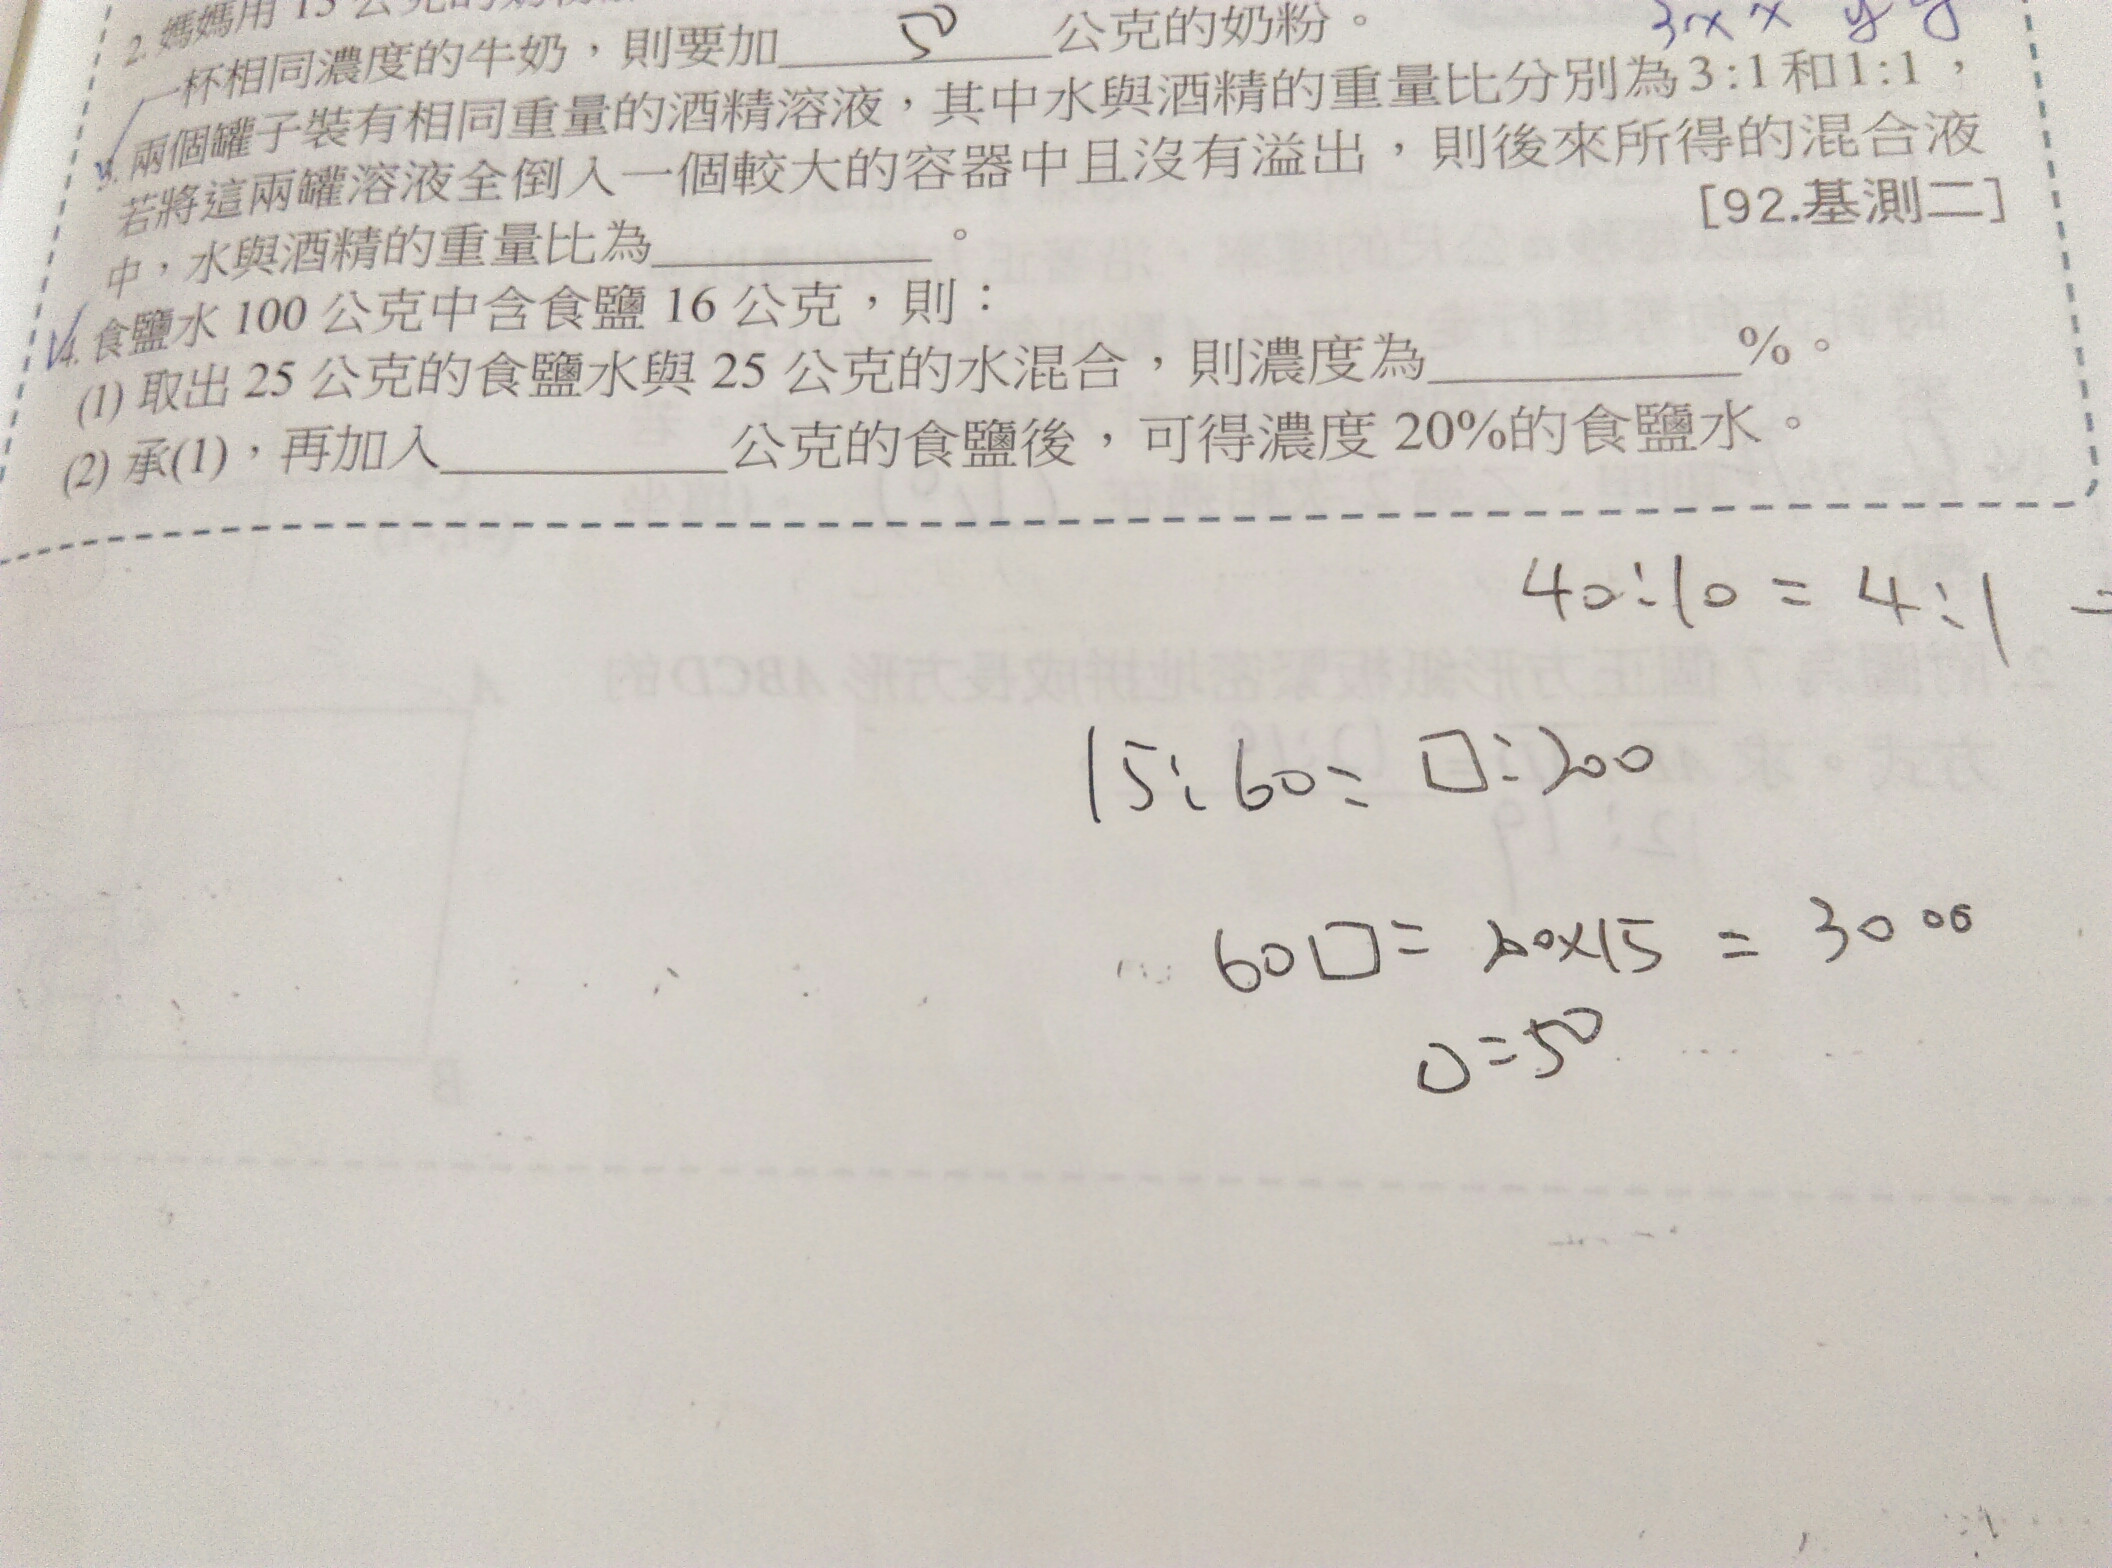 2. 媽媽用 15 公克的奶粉
一杯相同濃度的牛奶，則要加 50 公克的奶粉。
3x x y y
3. 兩個罐子裝有相同重量的酒精溶液，其中水與酒精的重量比分別為3:1和1:1，
若將這兩罐溶液全倒入一個較大的容器中且沒有溢出，則後來所得的混合液
中，水與酒精的重量比為＿＿＿＿。 [92.基測二]
4. 食鹽水 100 公克中含食鹽 16 公克，則：
(1) 取出 25 公克的食鹽水與 25 公克的水混合，則濃度為＿＿＿＿%。
(2) 承(1)，再加入＿＿＿＿公克的食鹽後，可得濃度 20%的食鹽水。
40:10 = 4:1
15:60 = □:200
60□ = 200x15 = 3000
□=50